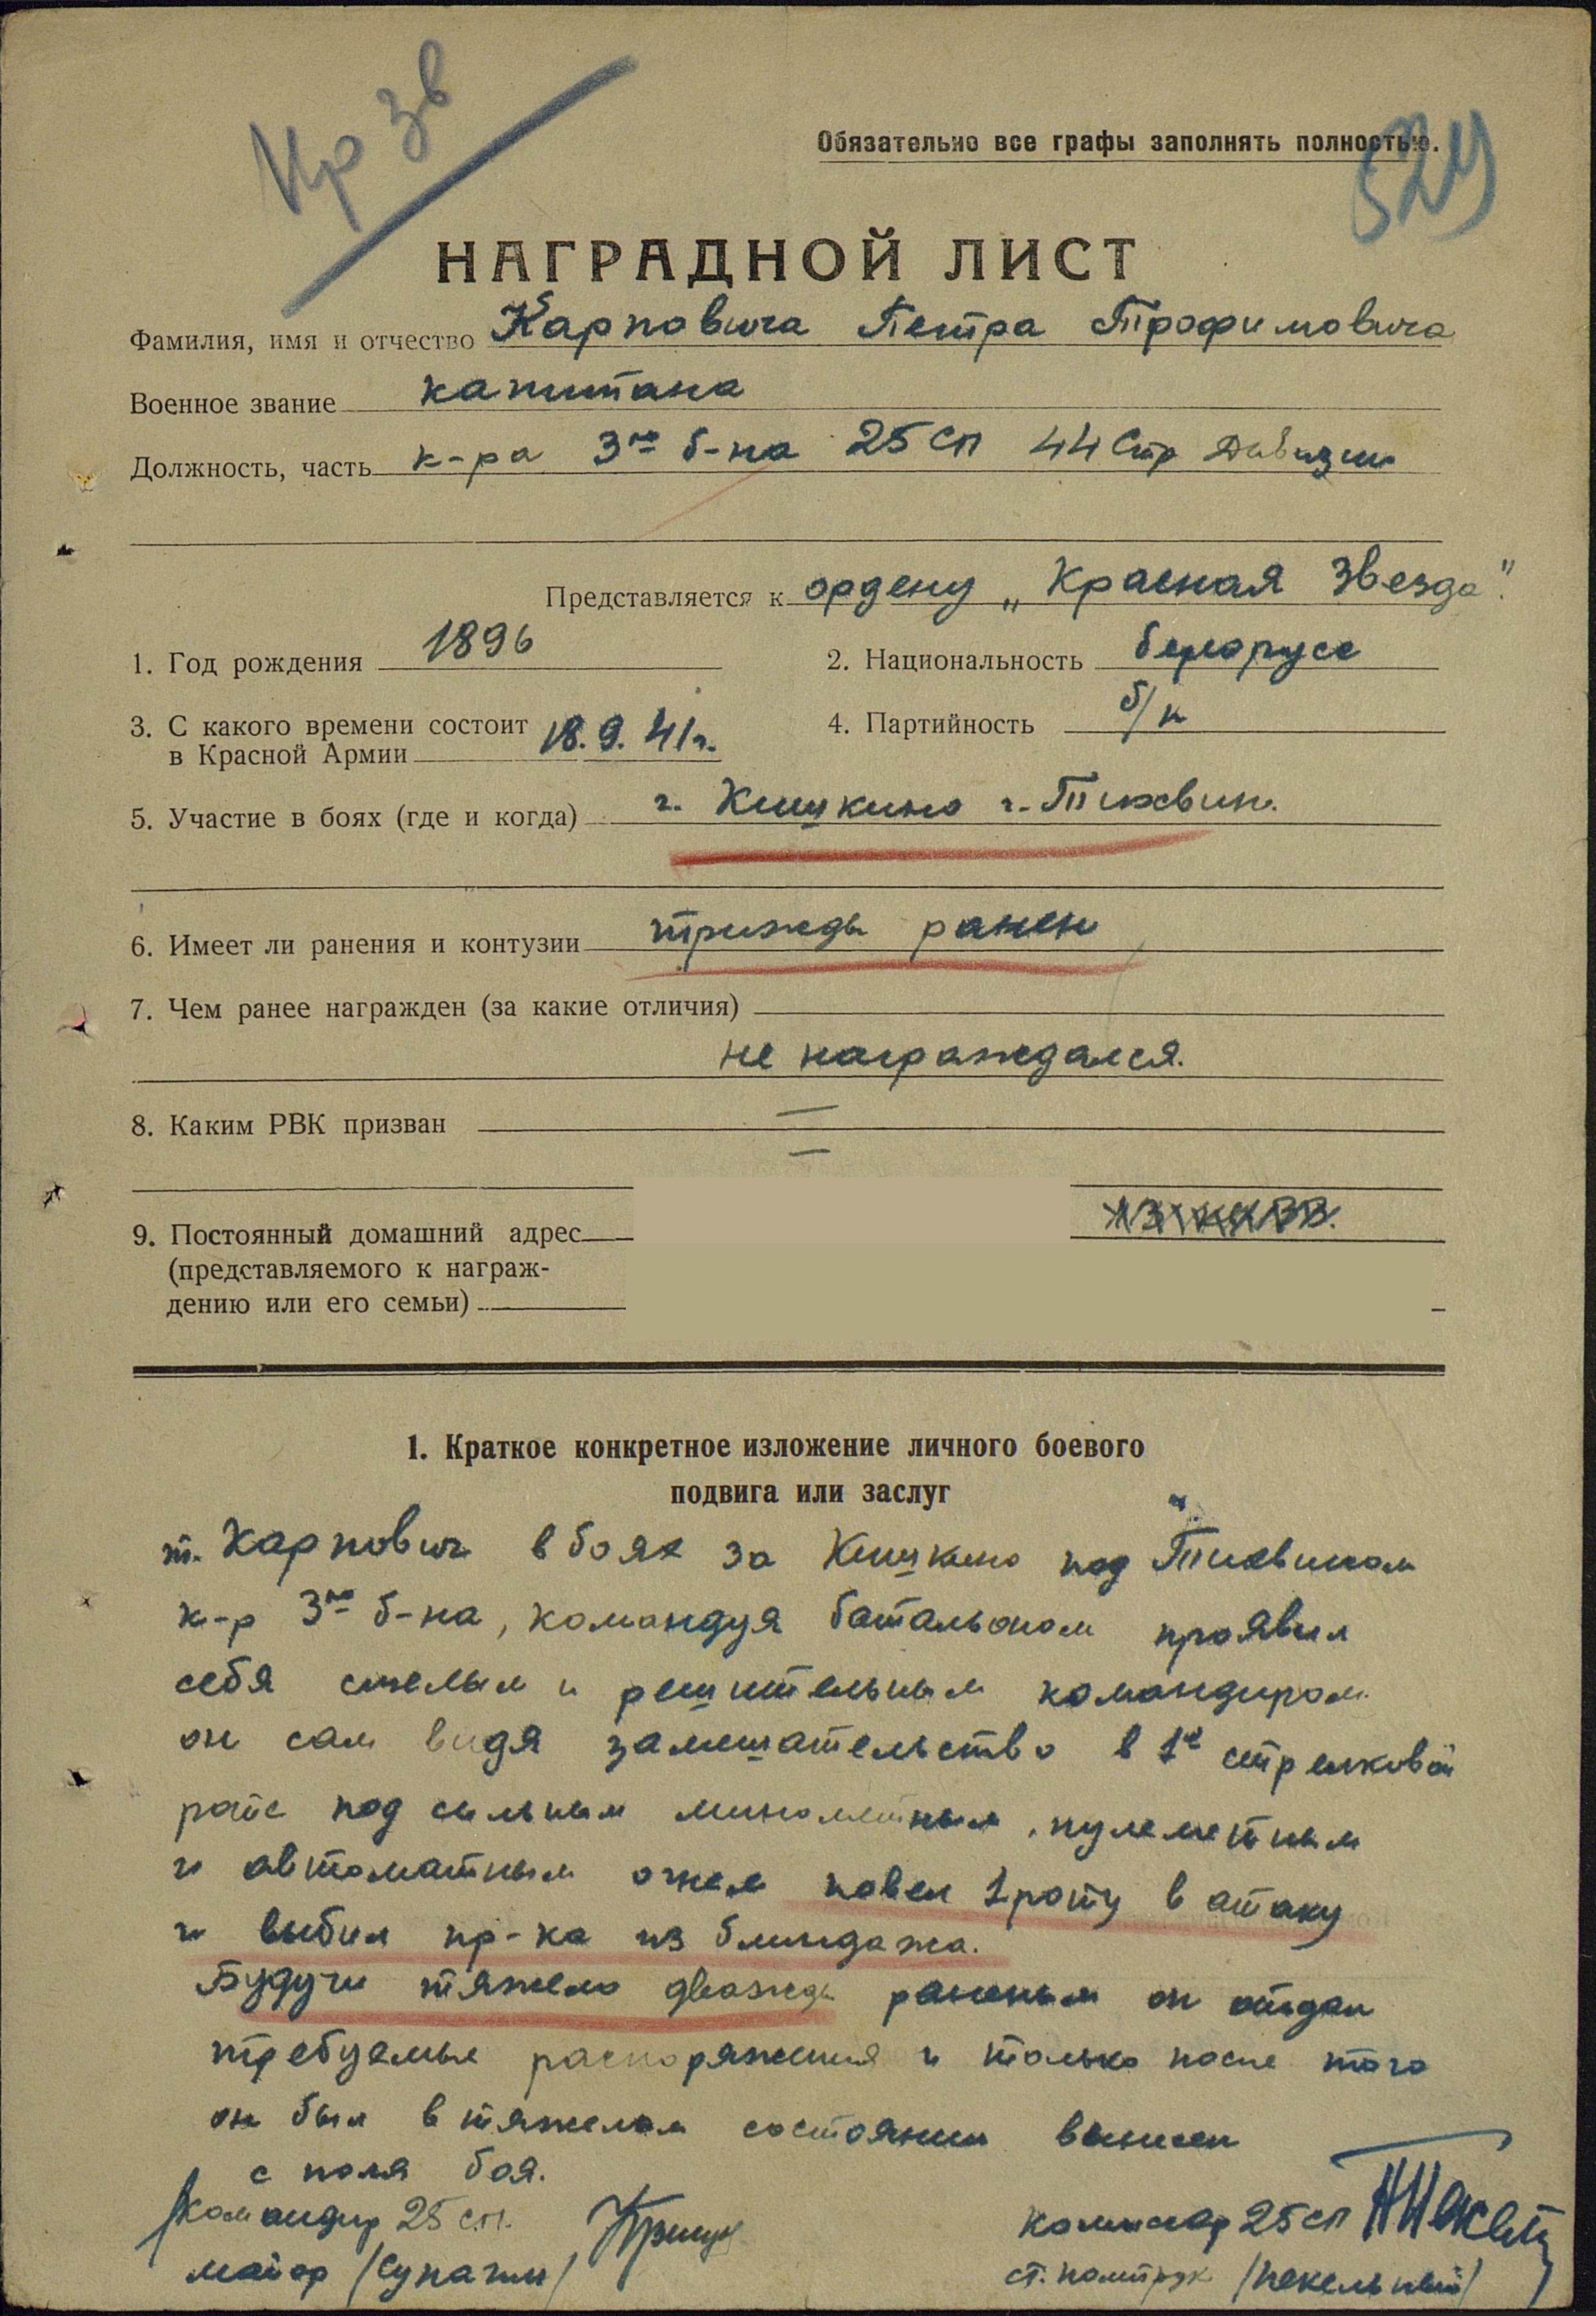 Кр Зв
Обязательно все графы заполнять полностью.
НАГРАДНОЙ ЛИСТ
Фамилия, имя и отчество Карповича Петра Трофимовича
Военное звание капитана
Должность, часть к-ра 3го б-на 25 сп 44 Стр Дивизии
Представляется к ордену „Красная Звезда".
1. Год рождения 1896
2. Национальность белорусс
3. С какого времени состоит
в Красной Армии 18.9.41г.
4. Партийность б/п
5. Участие в боях (где и когда) г. Кишкино г. Тихвин.
6. Имеет ли ранения и контузии трижды ранен
7. Чем ранее награжден (за какие отличия)
не награждался.
8. Каким РВК призван
9. Постоянный домашний адрес
(представляемого к награж-
дению или его семьи)
1. Краткое конкретное изложение личного боевого
подвига или заслуг
т. Карпович в боях за Кишкино под Тихвином
к-р 3го б-на, командуя батальоном проявил
себя смелым и решительным командиром
он сам видя замешательство в 1й стрелковой
роте под сильным минометным, пулеметным
и автоматным огнем повел 1 роту в атаку
и выбил пр-ка из блиндажа.
Будучи тяжело дважды раненым он отдал
требуемые распоряжения и только после того
он был в тяжелом состоянии вынесен
с поля боя.
Командир 25 с.п.
майор /Супагин/
Комиссар 25 сп
ст. политрук /Пекельный/